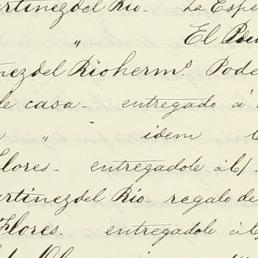 artinez del Rio. La Espe
" El
nez del Rio herm.º Pode
le casa. entregado á
" idem
Flores. entregadole á c/.
artinez del Rio regalo de
Flores. entregadole á c/